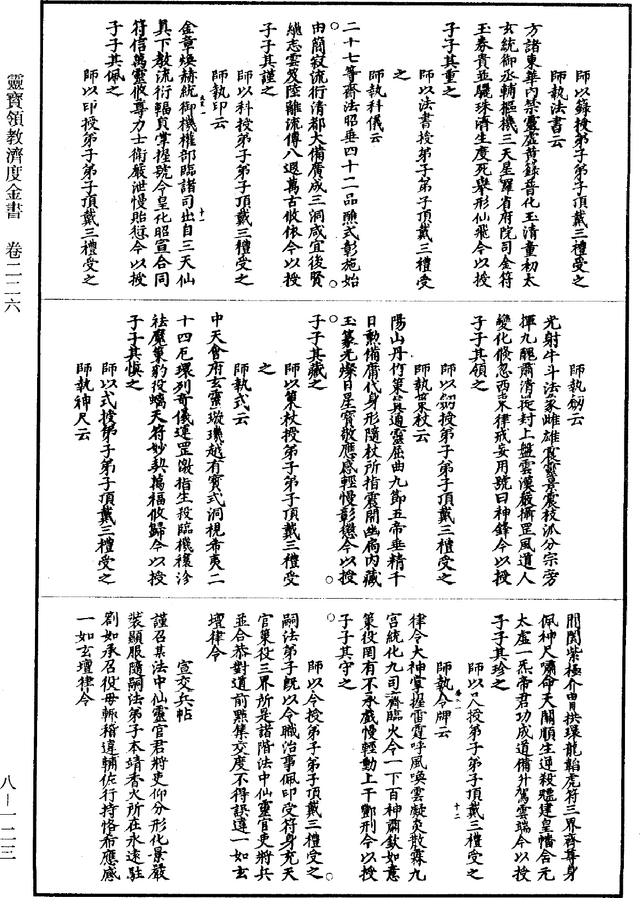 師以籙授弟子弟子頂戴三禮受之
師執法書云
方諸東華內禁靈虛黃籙普化玉清童初太
玄統御丞輔樞機三天星羅省府院司金符
玉券貴並驪珠濟生度死舉形仙飛今以授
子子其重之
師以法書授弟子弟子頂戴三禮受
之
師執科儀云
二十七等齋法昭垂四十二品醮式彰施始
由簡寂流衍清都大備廣成三洞咸宜後賢
繼志雲笈陸離流傳八遐萬古攸依今以授
子子其謹之
師以科授弟子弟子頂戴三禮受之
師執印云
金章煥赫統御機權部臨諸司出自三天仙
真下教流衍輻員掌握號令皇化昭宣合同
符信萬靈彼尊力士衛嚴泄慢貽愆今以授
子子其佩之
師以印授弟子弟子頂戴三禮受之
師執劒云
光射牛斗法象雌雄震藝景震枝派分宗旁
揮九醜肅清從封上盤雲漢嚴攝罡風道人
變化倐忽西東律戒妄用號曰神鋒今以授
子子其領之
師以劒授弟子弟子頂戴三禮受之
師執策杖云
陽山丹竹策真通靈屈曲九節五帝垂精千
日勲備庸代身形隨杖所指震開幽扃內藏
玉篆光燦日星寶敬應感輕慢彰懲今以授
子子其藏之
師以策杖授弟子弟子頂戴三禮受
之
師執式云
中天會府玄靈璇璣越有寶式洞視希夷二
十四厄環列奇儀連罡激指生殺臨機禳沴
祛魔策豹役螭天符妙契萬福攸歸今以授
子子其慎之
師以式授弟子弟子頂戴三禮受之
師執神尺云
開閱紫極介冑月拱環龍韜虎符三界齊尊身
佩神尺嘯命天關順生逆殺殭建皇幡合元
太虛一炁帝君功成道備升駕雲端今以授
子子其珍之
師以尺授弟子弟子頂戴三禮受之
師執令牌云
律令大神掌握雷霆呼風喚雲凝炎散霖九
宮統化九司齊臨火令一下百神肅欽如意
策役罔有不承戲慢輕動上干酆刑今以授
子子其守之
師以令授弟子弟子頂戴三禮受之
嗣法弟子旣以今職治事佩印受符身充天
官策役三界所是諸階法中仙靈官吏將兵
並合恭對道前點集交度不得誤違一如玄
壇律令
宣交兵帖
謹召某法中仙靈官君將吏仰分形化景嚴
裝顯服隨嗣法弟子本靖香火所在永遠駐
劄如承召役毋輒稽違輔佐行持恪希應感
一如玄壇律令
靈寶領教濟度金書　卷二二六
八—一二三